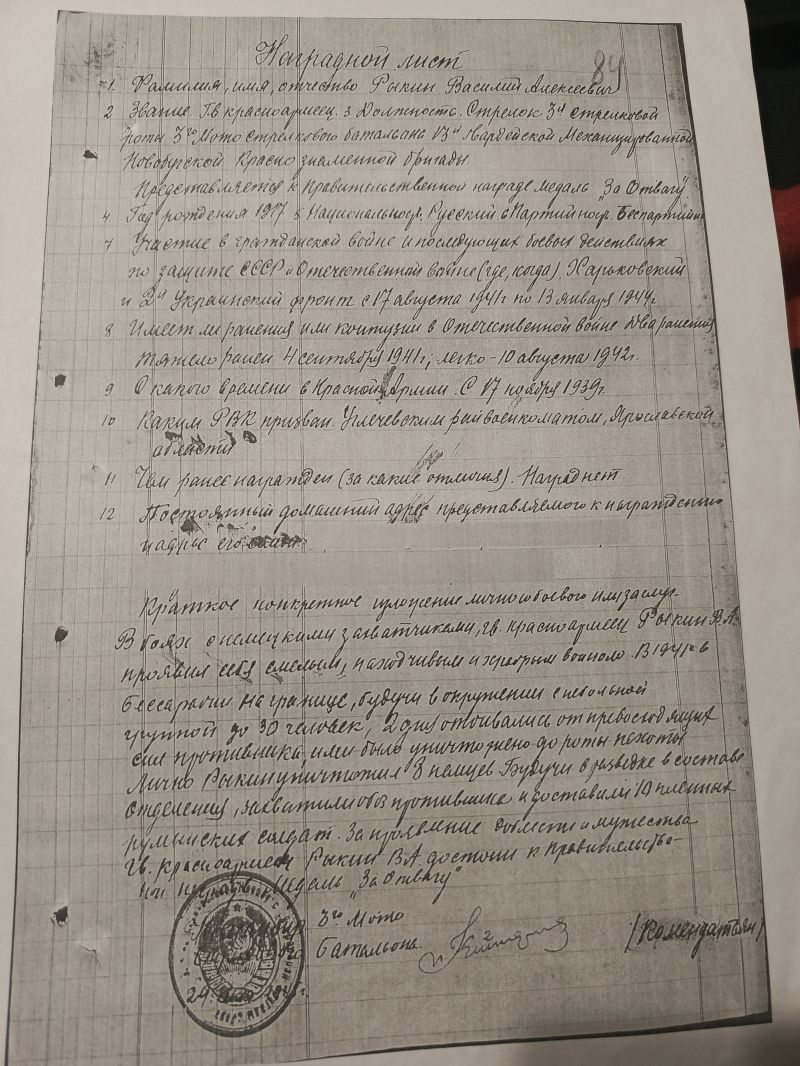 Наградной лист
84
1. Фамилия, имя, отчество Рыкин Василий Алексеевич
2 Звание Гв красноармеец 3. Должность. Стрелок 3й стрелковой
роты 3го Мото стрелкового батальона 13й Гвардейской Механизированной
Новобугской Краснознаменной бригады
Представляется к Правительственной награде медаль "За Отвагу"
4 Год рождения 1917 5 Национальност. Русский 6 Партийност. Беспартийн
7 Участие в гражданской войне и последующих боевых действиях
по защите СССР и Отечественной войне (где, когда) Харьковский
и 2й Украинский фронт с 17 августа 1941г по 13 января 1944г
8 Имеет ли ранения или контузии в Отечественной войне Два ранения
тяжело ранен 4 сентября 1941г, легко - 10 августа 1942г.
9 С какого времени в Красной Армии. С 17 ноября 1939г.
10 Каким РВК призван. Углечевским райвоенкоматом, Ярославской
области
11 Чем ранее награжден (за какие отличия). Наград нет.
12 Постоянный домашний адрес представляемого к награждению
и адрес его
Краткое конкретное изложение личного боевого
В боях с немецкими захватчиками, гв. красноармеец Рыкин В.А.
проявил себя смелым, находчивым и храбрым воином. В 1941г в
Бессарабии на границе, будучи в окружении с небольшой
группой до 30 человек, 2 дня отбивались от превосходящих
сил противника, ими было уничтожено до роты пехоты
Лично Рыкин уничтожил 3 немцев Будучи в разведке в составе
отделения, захватили обоз противника и доставили 10 пленных
румынских солдат. За проявление доблести и мужества
гв. красноармеец Рыкин В.А. достоин к Правительствен-
ной медаль "За Отвагу"
3го Мото
Батальона
/Комендатьян/